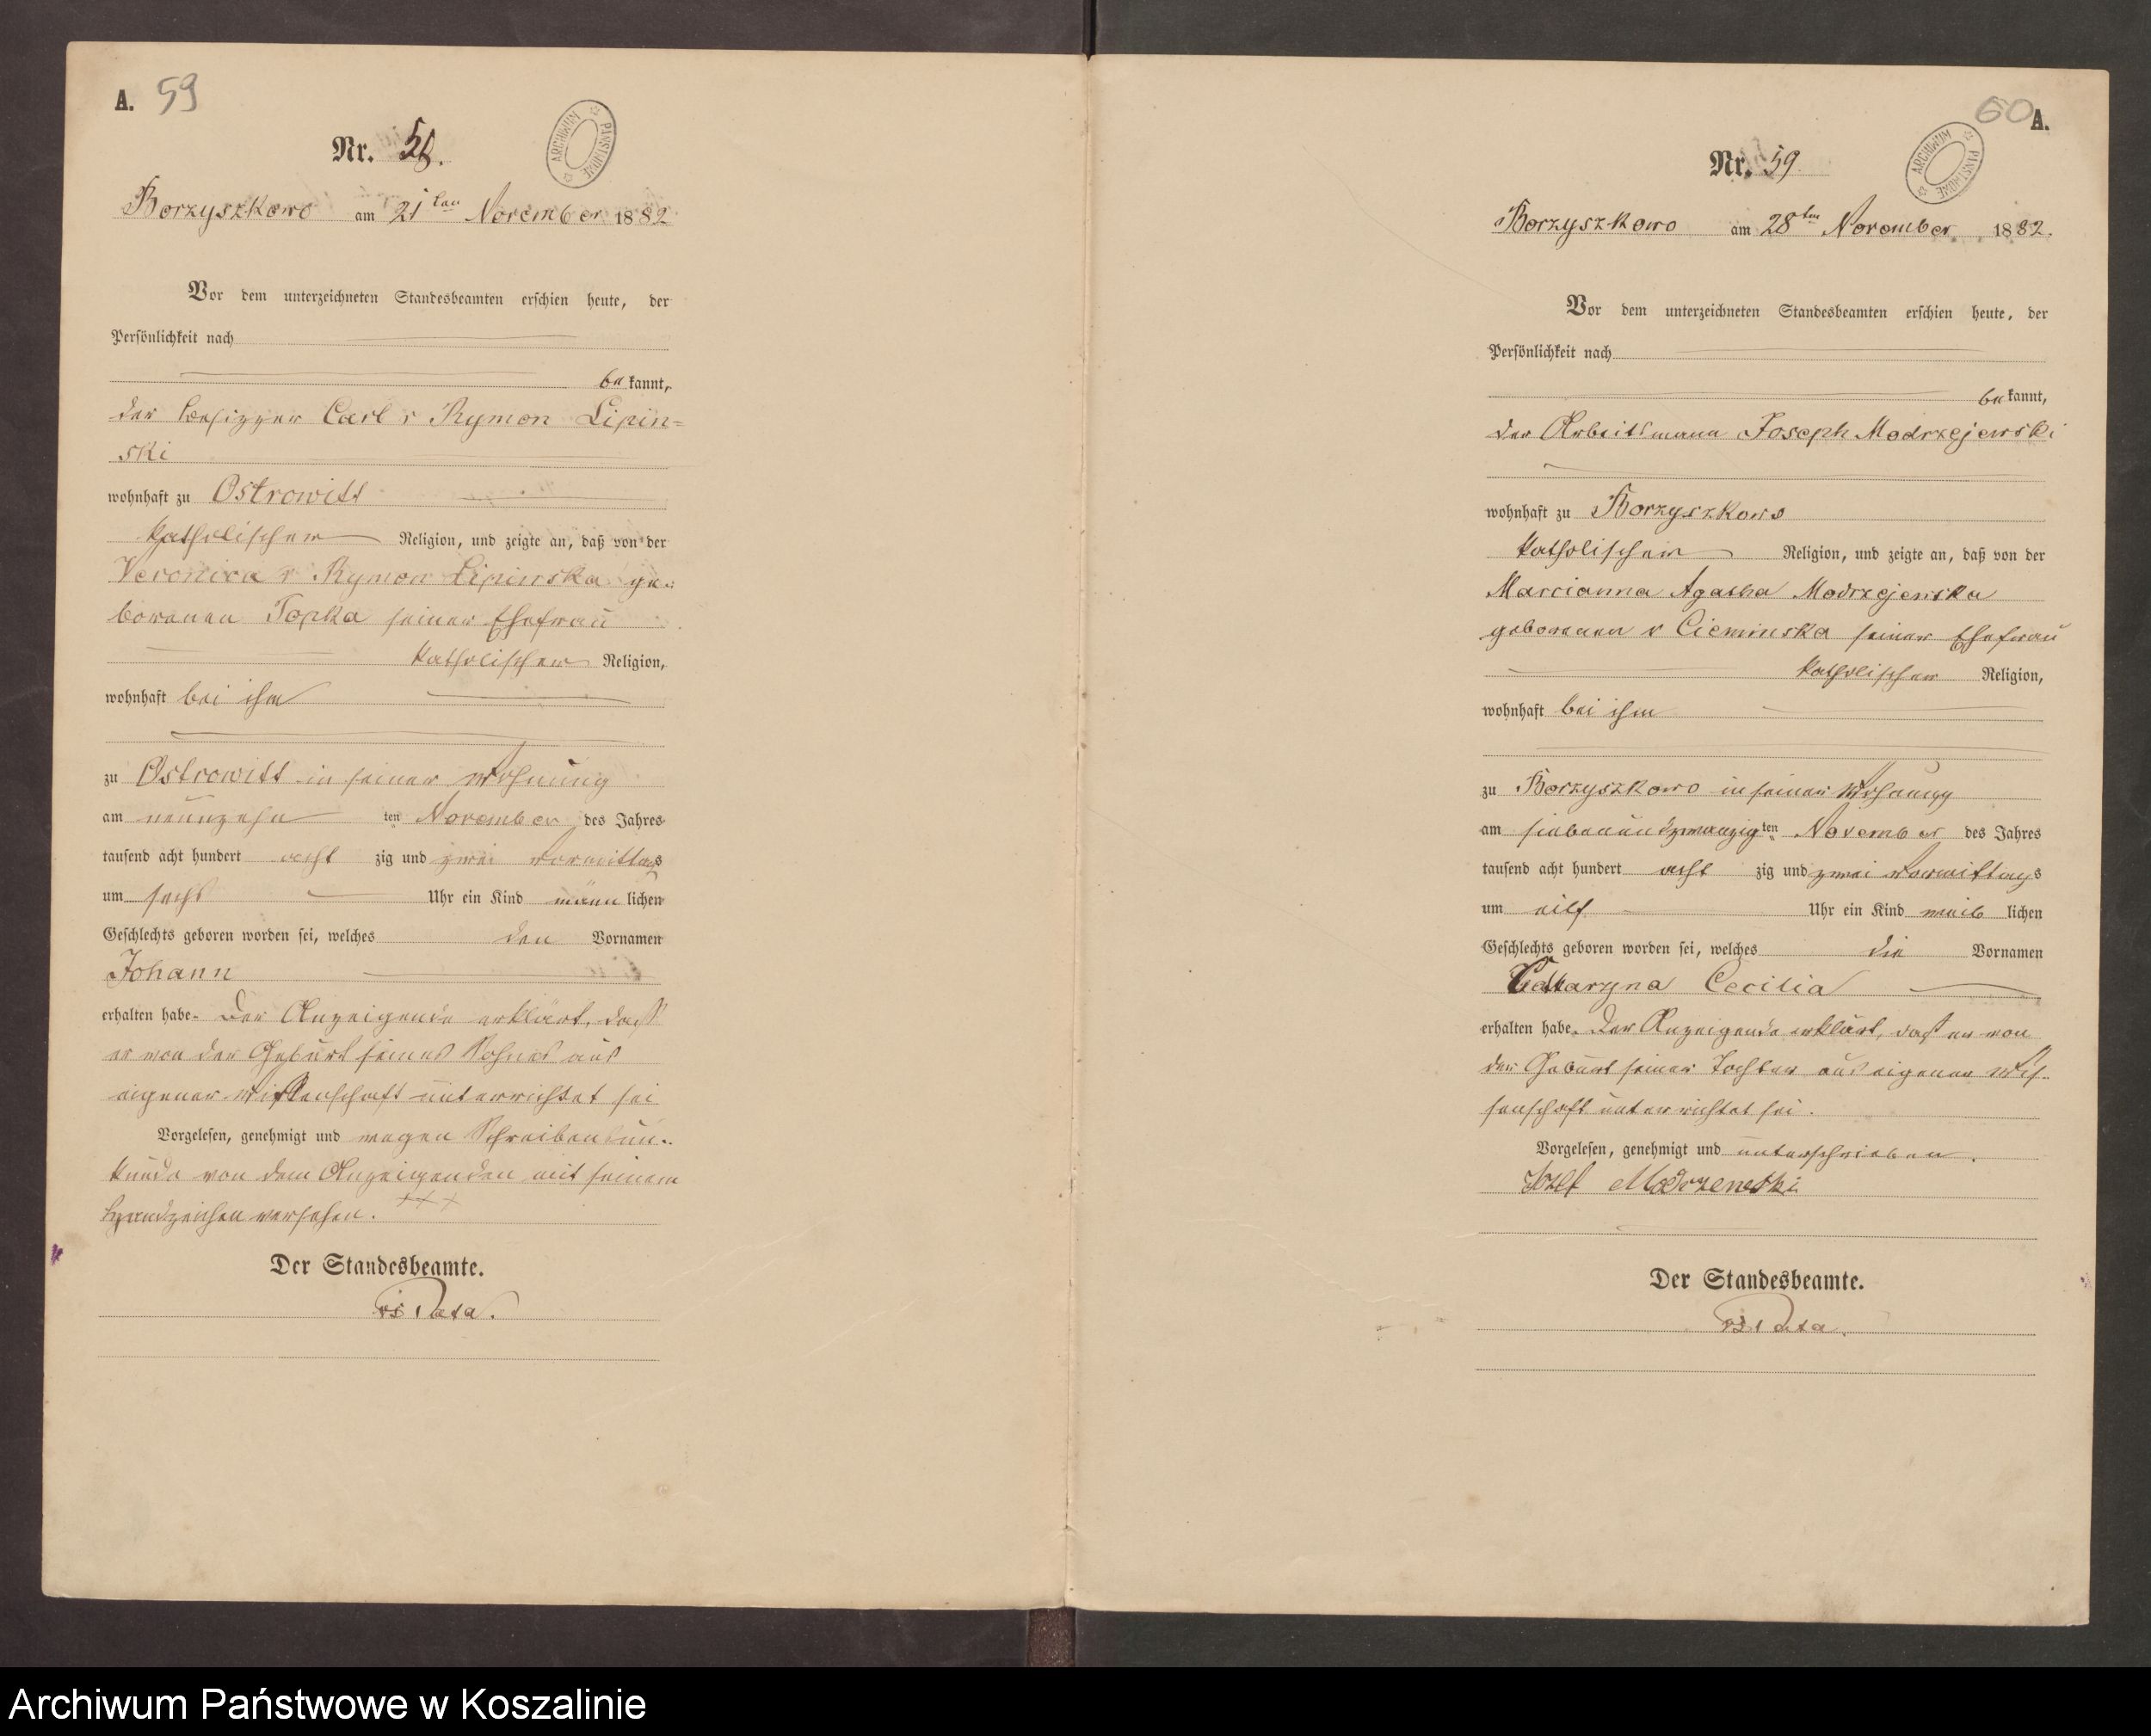 A. 59
Nr. 58.
ARCHIWUM PAŃSTWOWE
Borzyszkowo am 21ten November 1882
Vor dem unterzeichneten Standesbeamten erschien heute, der
Persönlichkeit nach
be kannt,
der Besitzer Carl v Rymon Lipin=
ski
wohnhaft zu Ostrowitt
katholischer Religion, und zeigte an, daß von der
Veronica v Rymon Lipinska ge-
borenen Topka seiner Ehefrau
katholischer Religion,
wohnhaft bei ihm
zu Ostrowitt in seiner Wohnung
am neunzehn ten November des Jahres
tausend acht hundert acht zig und zwei Vormittags
um sechs Uhr ein Kind männ lichen
Geschlechts geboren worden sei, welches den Vornamen
Johann
erhalten habe. Der Anzeigende erklärt, daß
er von der Geburt seines Sohnes aus
eigener Wissenschaft unterrichtet sei
Vorgelesen, genehmigt und wegen Schreibensun-
kunde von dem Anzeigenden mit seinem
Handzeichen versehen. +++
Der Standesbeamte.
60 A.
Nr. 59
ARCHIWUM PAŃSTWOWE
Borzyszkowo am 28ten November 1882.
Vor dem unterzeichneten Standesbeamten erschien heute, der
Persönlichkeit nach
be kannt,
der Arbeitsmann Joseph Modrzejewski
wohnhaft zu Borzyszkowo
katholischer Religion, und zeigte an, daß von der
Marcianna Agatha Modrzejewska
geborenen v Cieminska seiner Ehefrau
katholischer Religion,
wohnhaft bei ihm
zu Borzyszkowo in seiner Wohnung
am siebenundzwanzig ten November des Jahres
tausend acht hundert acht zig und zwei Vormittags
um eilf Uhr ein Kind weib lichen
Geschlechts geboren worden sei, welches die Vornamen
Catharzyna Cecilia
erhalten habe. Der Anzeigende erklärt, daß er von
der Geburt seiner Tochter aus eigener Wis-
senschaft unterrichtet sei.
Vorgelesen, genehmigt und unterschrieben.
Józef
Der Standesbeamte.
Archiwum Państwowe w Koszalinie